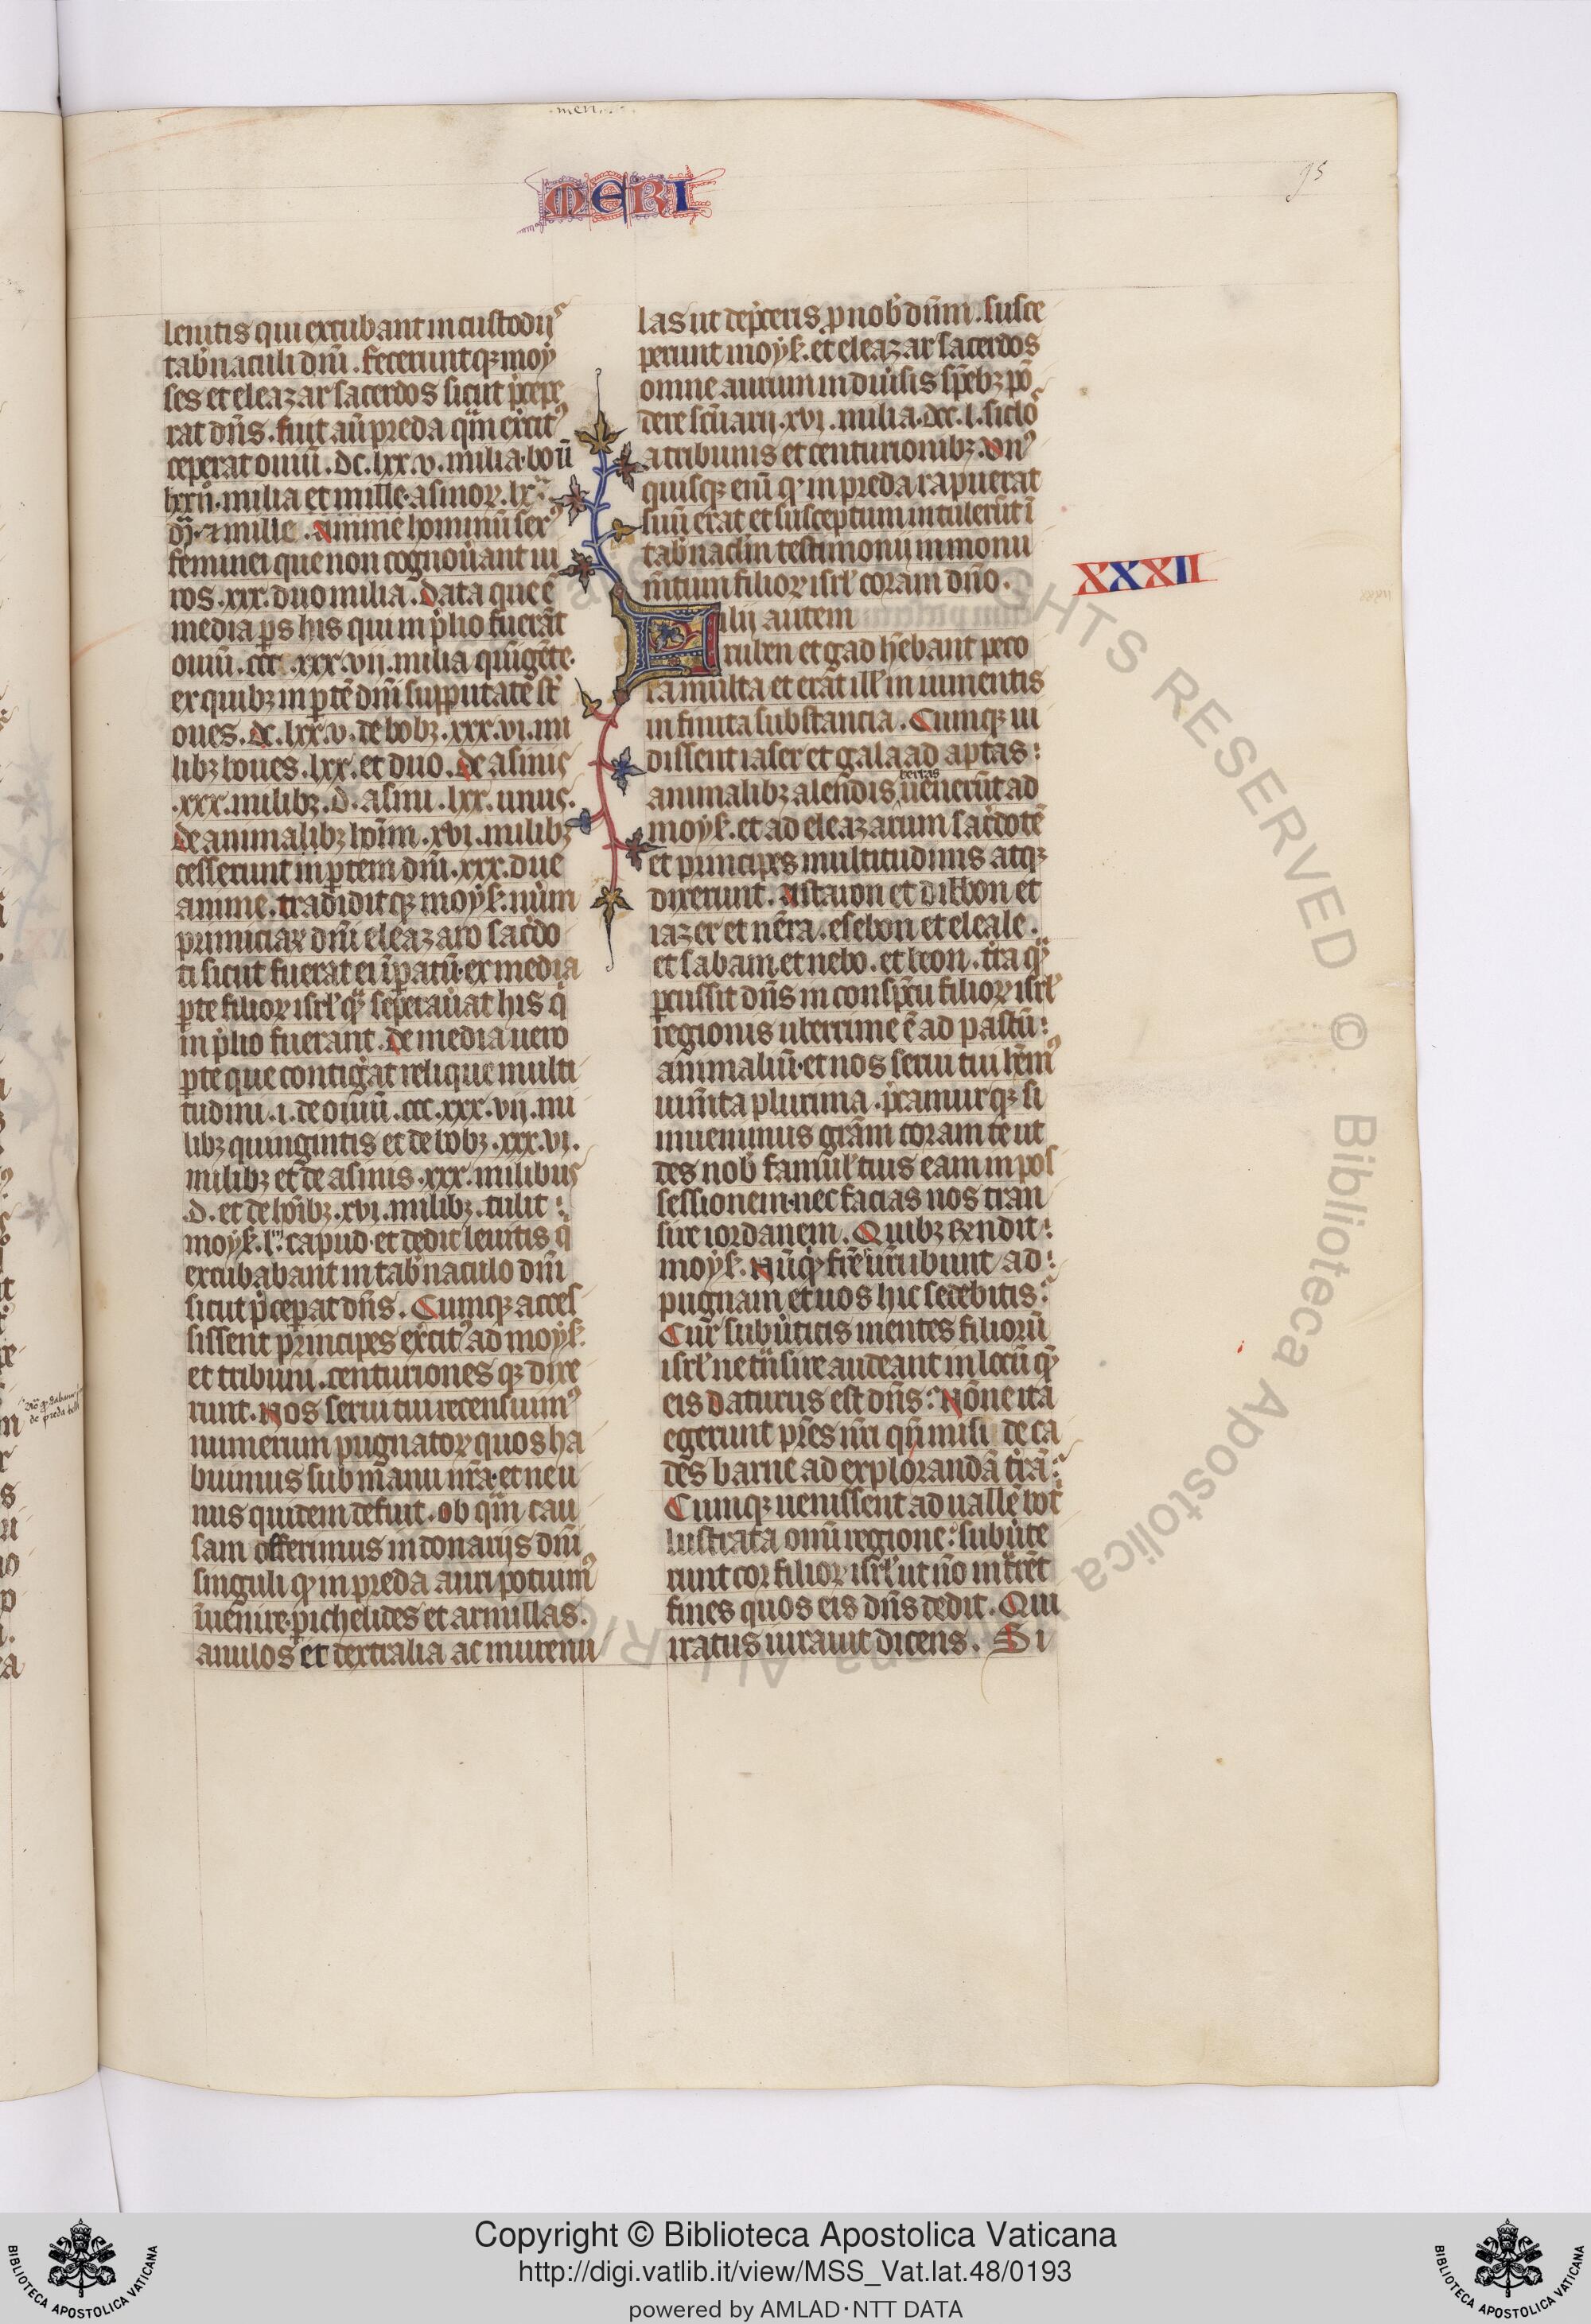 men
MERI
95
leuitis qui excubant in custodijs
tab̾naculi dn̄i. fecerunt qꝫ moy
ses et eleazar sacerdos sicut p̾cepe
rat dn̄s. fuit au̅ preda qua̅ ex̾cit⁹
ceperat ouiu̅. dc. lxx. v. milia. bou̅
lxxij. milia et mille. asinoꝝ. lx.
a mille. anime hominu̅ sex⁹
feminei que non cognou̾ant ui
ros. xxx. duo milia. Data que e̅
media p̱s his qui in p̾lio fuera̅t
ouiu̅. ccc. xxx. vij. milia qui̅ge̅te.
ex quibꝫ in p̱te̅ dn̄i supputate st̄
oues. dc. lxx. v. de bobꝫ. xxx. vi. mi
libꝫ boues. lxx. et duo. de asinis
.xxx. milibꝫ. d. asini. lxx. unus.
de animalibꝫ ho̅im. xvi. milibꝫ
cesserunt in p̱tem dn̄i. xxx. due
anime. tradidit qꝫ moyẜ. nu̅m
primiciaꝝ dn̄i eleazaro sac̾do
ti sicut fuerat ei i̅p̱atu̅. ex media
p̱te filioꝝ isrł qua̅ sep̱erau̾at his qͥ
in p̾lio fuerant. de media uero
p̱te que contig̾at relique multi
tudini. i. de ouiu̅. ccc. xxx. vij. mi
libꝫ quingintis et de bobꝫ. xxx. vi.
milibꝫ et de asinis. xxx. milibus
.d. et de ho̅ibꝫ. xvi. milibꝫ. tulit
moyẜ. l. capud. et dedit leuitis qͥ
excubabant in tab̾naculo dn̄i
sicut p̾cep̱at dn̄s. Cumqꝫ acces
sissent principes ex̾cit⁹ ad moyẜ.
et tribuni. centuriones qꝫ dixe
runt. Nos serui tui recensuim⁹
numerum pugnatoꝝ quos ha
buimus sub manu nr̄a. et ne u
nus quidem defuit. ob qua̅ cau
sam offerimus in donarijs dn̄i
singuli qꝫ in preda auri potuim⁹
i̅uenire. p̱ichelides et armillas.
anulos et dextralia ac murenu
las ut dep̾ceris ꝓ nob̾ dn̄m. susce
perunt moyẜ. et eleazar sacerdos
omne aurum in diu̾sis sp̄ebꝫ po̅
dere sc̄uarij. xvi. milia. dcc. l. siclo̅
a tribunis et centurionibꝫ. vn⁹
quisqꝫ eni̅ qꝫ in preda rapuerat
suu̅ erat et susceptum intuleru̅t i̅
tab̾nac̄lm testimonij in monu
m̄tum filioꝝ isrł coram dn̄o.
XXXII
Filij autem
ruben et gad he̅bant peco
ra multa et era̅t ill̄ in iumentis
infinita substancia. Cumqꝫ ui
dissent iaser et galaad aptas
t̾ras
animalibꝫ alendis, ueneru̅t ad
moyẜ. et ad eleazarum sac̾dote̅
et principes multitudinis atqꝫ
dixerunt. Astaron et dibbon et
iazer et nem̅ra. esebon et eleale.
et sabam. et nebo. et beon. t̾ra qua̅
p̱cussit dn̄s in consp̾cu filioꝝ isrł
regionis uberrime e̅ ad pastu̅
animaliu̅. et nos serui tui he̅m⁹
ium̄ta plurima. p̾camurqꝫ si
inuenimus gr̄am coram te ut
des nob̾ famul̄ tuis eam in pos
sessionem. nec facias nos tran
sire iordanem. Quibꝫ rn̄dit
moyẜ. Nu̅qꝫ fr̄es ur̄i ibunt ad
pugnam et uos hic sedebitis
Cur subu̾titis mentes filioru̅
isrł ne tn̅sire audeant in locu̅ qꝫ
eis daturus est dn̄s. No̅ne ita
egerunt pr̄es nr̄i qn̄ misi de ca
des barne ad exploranda̅ t̾ra̅
Cumqꝫ uenissent ad ualle̅ bot̾
lustrata omi̅ regione. subu̾te
runt cor filioꝝ isrł ut no̅ int̾re̅t
fines quos eis dn̄s dedit. Qui
iratus iurauit dicens. Si
ALL RIGHTS RESERVED © Biblioteca Apostolica Vaticana
Copyright © Biblioteca Apostolica Vaticana
http://digi.vatlib.it/view/MSS_Vat.lat.48/0193
powered by AMLAD·NTT DATA
BIBLIOTECA APOSTOLICA VATICANA
BIBLIOTECA APOSTOLICA VATICANA